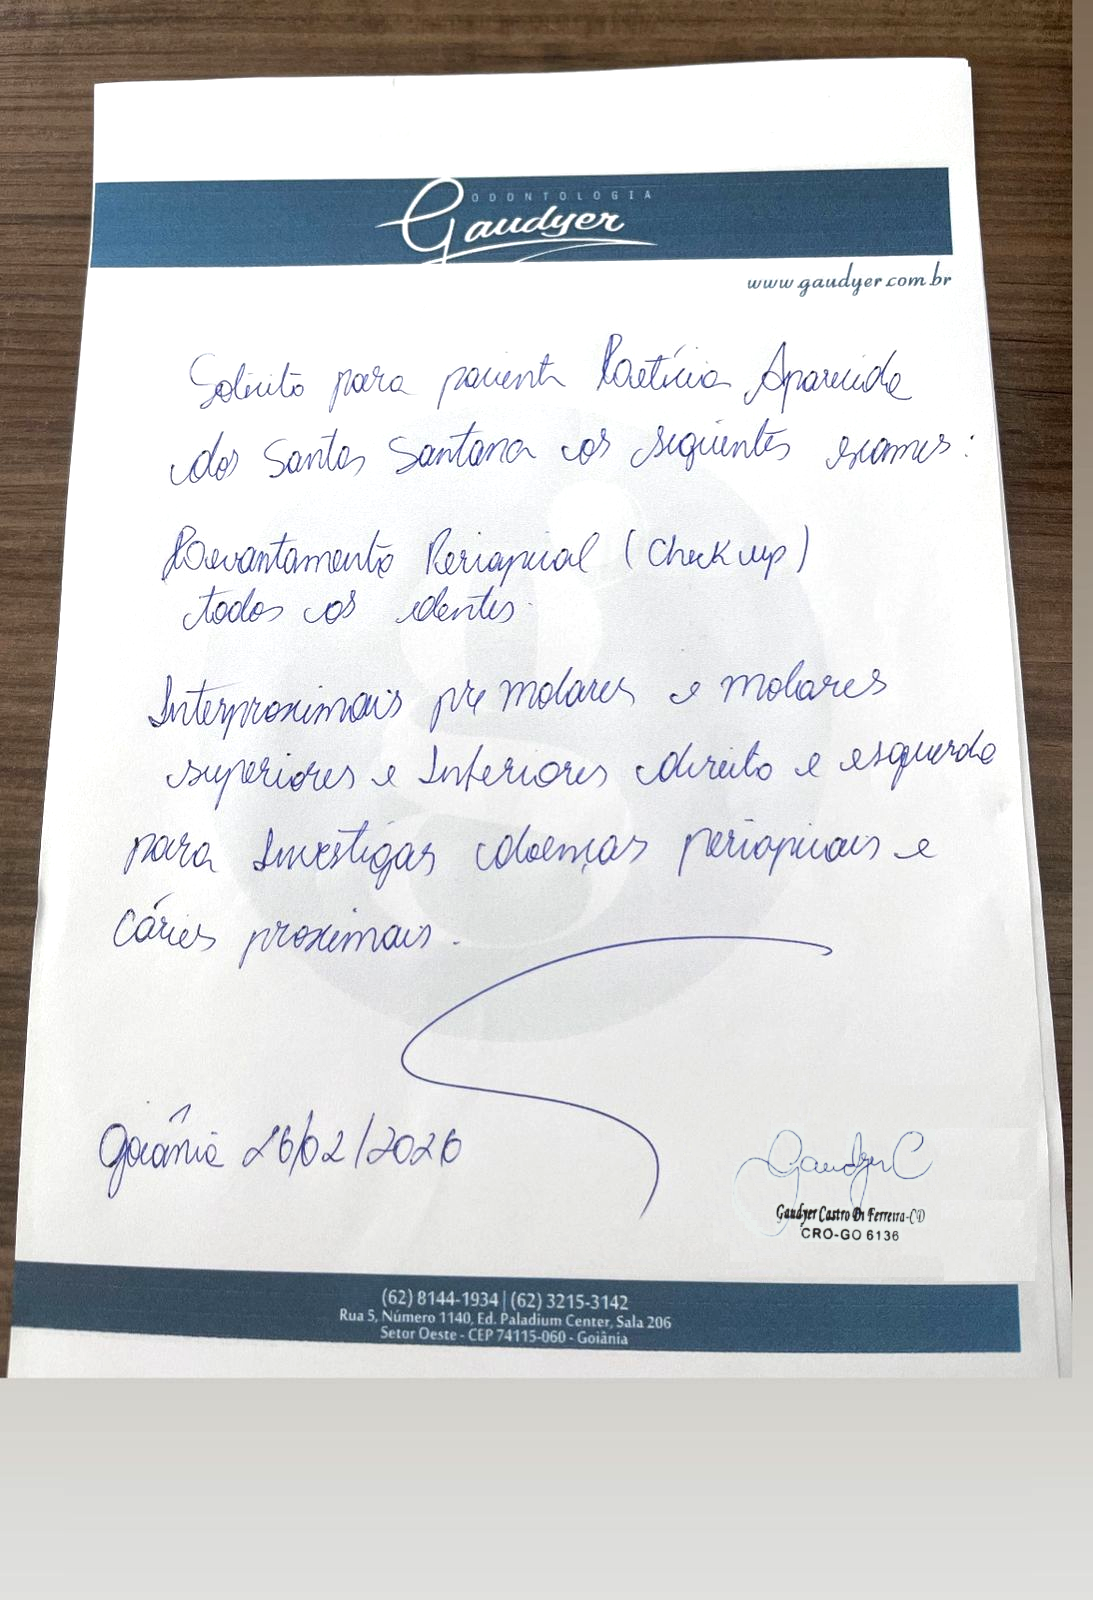 ODONTOLOGIA
Gaudyer
www.gaudyer.com.br
Solicito para paciente Letícia Aparecida
dos Santos Santana os seguintes exames:
Levantamento Periapical (Check up)
todos os dentes.
Interproximais pré molares e molares
superiores e Inferiores direito e esquerdo
para Investigar doenças periapicais e
cáries proximais.
Goiânia 26/02/2026
Gaudyer C
Gaudyer Castro Di Ferreira-CD
CRO-GO 6136
(62) 8144-1934 | (62) 3215-3142
Rua 5, Número 1140, Ed. Paladium Center, Sala 206
Setor Oeste - CEP 74115-060 - Goiânia